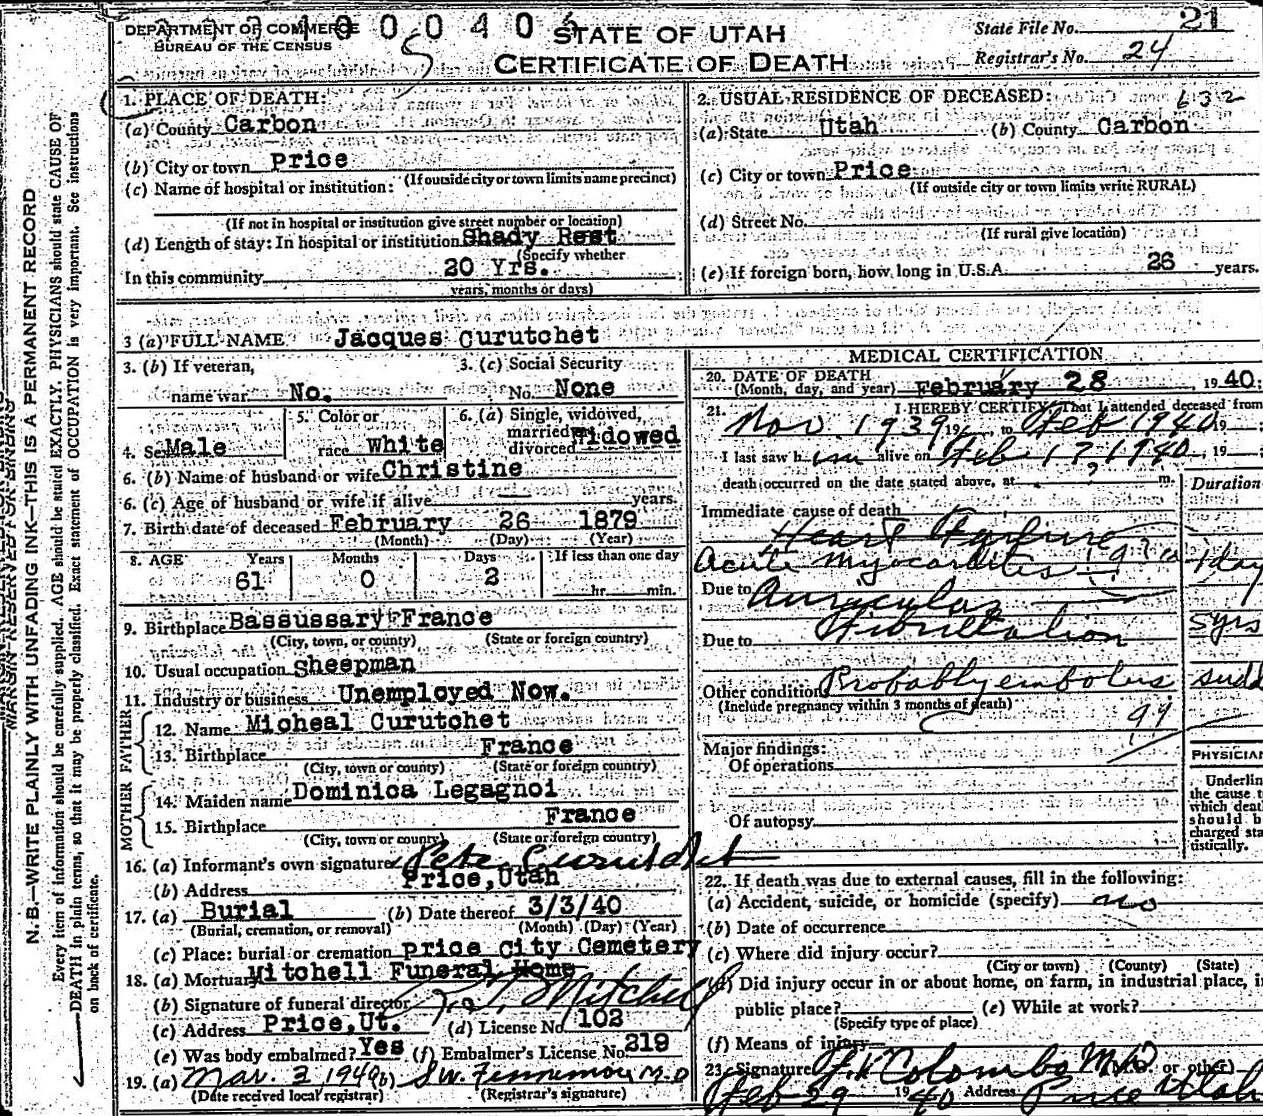 DEPARTMENT OF COMMERCE
BUREAU OF THE CENSUS
STATE OF UTAH
CERTIFICATE OF DEATH
State File No. 21
Registrar's No. 24
N. B.—WRITE PLAINLY WITH UNFADING INK—THIS IS A PERMANENT RECORD
Every item of information should be carefully supplied. AGE should be stated EXACTLY. PHYSICIANS should state CAUSE OF
DEATH in plain terms, so that it may be properly classified. Exact statement of OCCUPATION is very important. See instructions
on back of certificate.
1. PLACE OF DEATH:
(a) County Carbon
(b) City or town Price
(If outside city or town limits name precinct)
(c) Name of hospital or institution:
(If not in hospital or institution give street number or location)
(d) Length of stay: In hospital or institution Shady Rest
(Specify whether
In this community 20 Yrs.
years, months or days)
2. USUAL RESIDENCE OF DECEASED: 632
(a) State Utah (b) County Carbon
(c) City or town Price
(If outside city or town limits write RURAL)
(d) Street No.
(If rural give location)
(e) If foreign born, how long in U.S.A. 26 years.
3 (a) FULL NAME Jacques Curutchet
3. (b) If veteran, 3. (c) Social Security
name war No. No. None
4. Sex Male 5. Color or race White 6. (a) Single, widowed, married, divorced Widowed
6. (b) Name of husband or wife Christine
6. (c) Age of husband or wife if alive years.
7. Birth date of deceased February 26 1879
(Month) (Day) (Year)
8. AGE Years Months Days If less than one day
61 0 2 hr. min.
9. Birthplace Bassussary France
(City, town, or county) (State or foreign country)
10. Usual occupation Sheepman
11. Industry or business Unemployed Now.
FATHER
12. Name Micheal Curutchet
13. Birthplace France
(City, town or county) (State or foreign country)
MOTHER
14. Maiden name Dominica Legagnoi
15. Birthplace France
(City, town or county) (State or foreign country)
16. (a) Informant's own signature Pete Curutchet
(b) Address Price, Utah
17. (a) Burial (b) Date thereof 3/3/40
(Burial, cremation, or removal) (Month) (Day) (Year)
(c) Place: burial or cremation Price City Cemetery
18. (a) Mortuary Mitchell Funeral Home
(b) Signature of funeral director Mitchell
(c) Address Price, Ut. (d) License No 102
(e) Was body embalmed? Yes (f) Embalmer's License No. 219
19. (a) Mar. 2 1940 (b)
(Date received local registrar) (Registrar's signature)
MEDICAL CERTIFICATION
20. DATE OF DEATH
(Month, day, and year) February 28, 1940:
21. I HEREBY CERTIFY, That I attended deceased from
Nov 1939 19 , to Feb 1940 19
I last saw him alive on Feb 17, 1940, 19
death occurred on the date stated above, at m. Duration
Immediate cause of death
Heart Failure
Acute Myocarditis 1 day
Due to Auricular
Due to Fibrillation 5 yrs
Other conditions Probably embolus. sudd
(Include pregnancy within 3 months of death)
Major findings:
Of operations
Of autopsy
PHYSICIAN
Underlin
the cause t
which deat
should b
charged sta
tistically.
22. If death was due to external causes, fill in the following:
(a) Accident, suicide, or homicide (specify) no
(b) Date of occurrence
(c) Where did injury occur?
(City or town) (County) (State)
(d) Did injury occur in or about home, on farm, in industrial place, i
public place? (e) While at work?
(Specify type of place)
(f) Means of injury
23. Signature Colombo M.D. or other)
Feb 29 1940 Address Price Utah